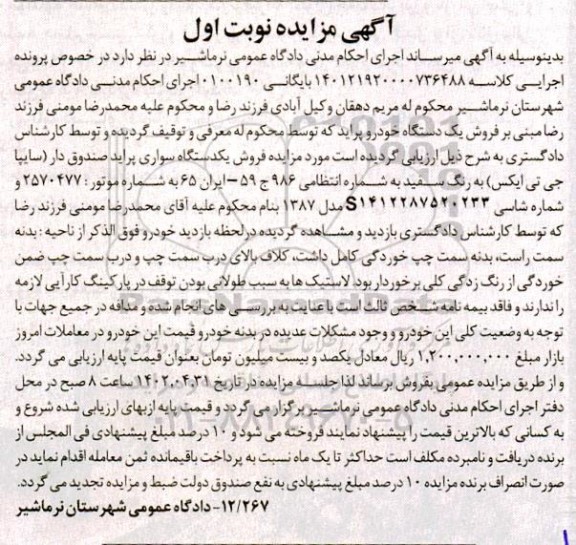 آگهی مزایده نوبت اول
بدینوسیله به آگهی میرساند اجرای احکام مدنی دادگاه عمومی نرماشیر در نظر دارد در خصوص پرونده
اجرایی کلاسه ۱۴۰۱۲۱۹۲۰۰۰۰۷۳۶۴۸۸ بایگانی ۰۱۰۰۱۹۰ اجرای احکام مدنی دادگاه عمومی
شهرستان نرماشیر محکوم له مریم دهقان وکیل آبادی فرزند رضا و محکوم علیه محمدرضا مومنی فرزند
رضا مبنی بر فروش یک دستگاه خودرو پراید که توسط محکوم له معرفی و توقیف گردیده و توسط کارشناس
دادگستری به شرح ذیل ارزیابی گردیده است مورد مزایده فروش یکدستگاه سواری پراید صندوق دار (سایپا
جی تی ایکس) به رنگ سفید به شماره انتظامی ۹۸۶ ج ۵۹ – ایران ۶۵ به شماره موتور: ۲۵۷۰۴۷۷ و
شماره شاسی S۱۴۱۲۲۸۷۵۲۰۲۳۳ مدل ۱۳۸۷ بنام محکوم علیه آقای محمدرضا مومنی فرزند رضا
که توسط کارشناس دادگستری بازدید و مشاهده گردیده درلحظه بازدید خودرو فوق الذکر از ناحیه: بدنه
سمت راست، بدنه سمت چپ خوردگی کامل داشت، کلاف بالای درب سمت چپ و درب سمت چپ ضمن
خوردگی از رنگ زدگی کلی برخوردار بود. لاستیک ها به سبب طولانی بودن توقف در پارکینگ کارآیی لازمه
را ندارند و فاقد بیمه نامه شخص ثالث است با عنایت به بررسی های انجام شده و مداقه در جمیع جهات با
توجه به وضعیت کلی این خودرو و وجود مشکلات عدیده در بدنه خودرو قیمت این خودرو در معاملات امروز
بازار مبلغ ۱,۲۰۰,۰۰۰,۰۰۰ ریال معادل یکصد و بیست میلیون تومان بعنوان قیمت پایه ارزیابی می گردد.
و از طریق مزایده عمومی بفروش برساند لذا جلسه مزایده در تاریخ ۱۴۰۲.۰۴.۳۱ ساعت ۸ صبح در محل
دفتر اجرای احکام مدنی دادگاه عمومی نرماشیر برگزار می گردد و قیمت پایه از بهای ارزیابی شده شروع و
به کسانی که بالاترین قیمت را پیشنهاد نمایند فروخته می شود و ۱۰ درصد مبلغ پیشنهادی فی المجلس از
برنده دریافت و نامبرده مکلف است حداکثر تا یک ماه نسبت به پرداخت باقیمانده ثمن معامله اقدام نماید در
صورت انصراف برنده مزایده ۱۰ درصد مبلغ پیشنهادی به نفع صندوق دولت ضبط و مزایده تجدید می گردد.
۱۲/۲۶۷- دادگاه عمومی شهرستان نرماشیر